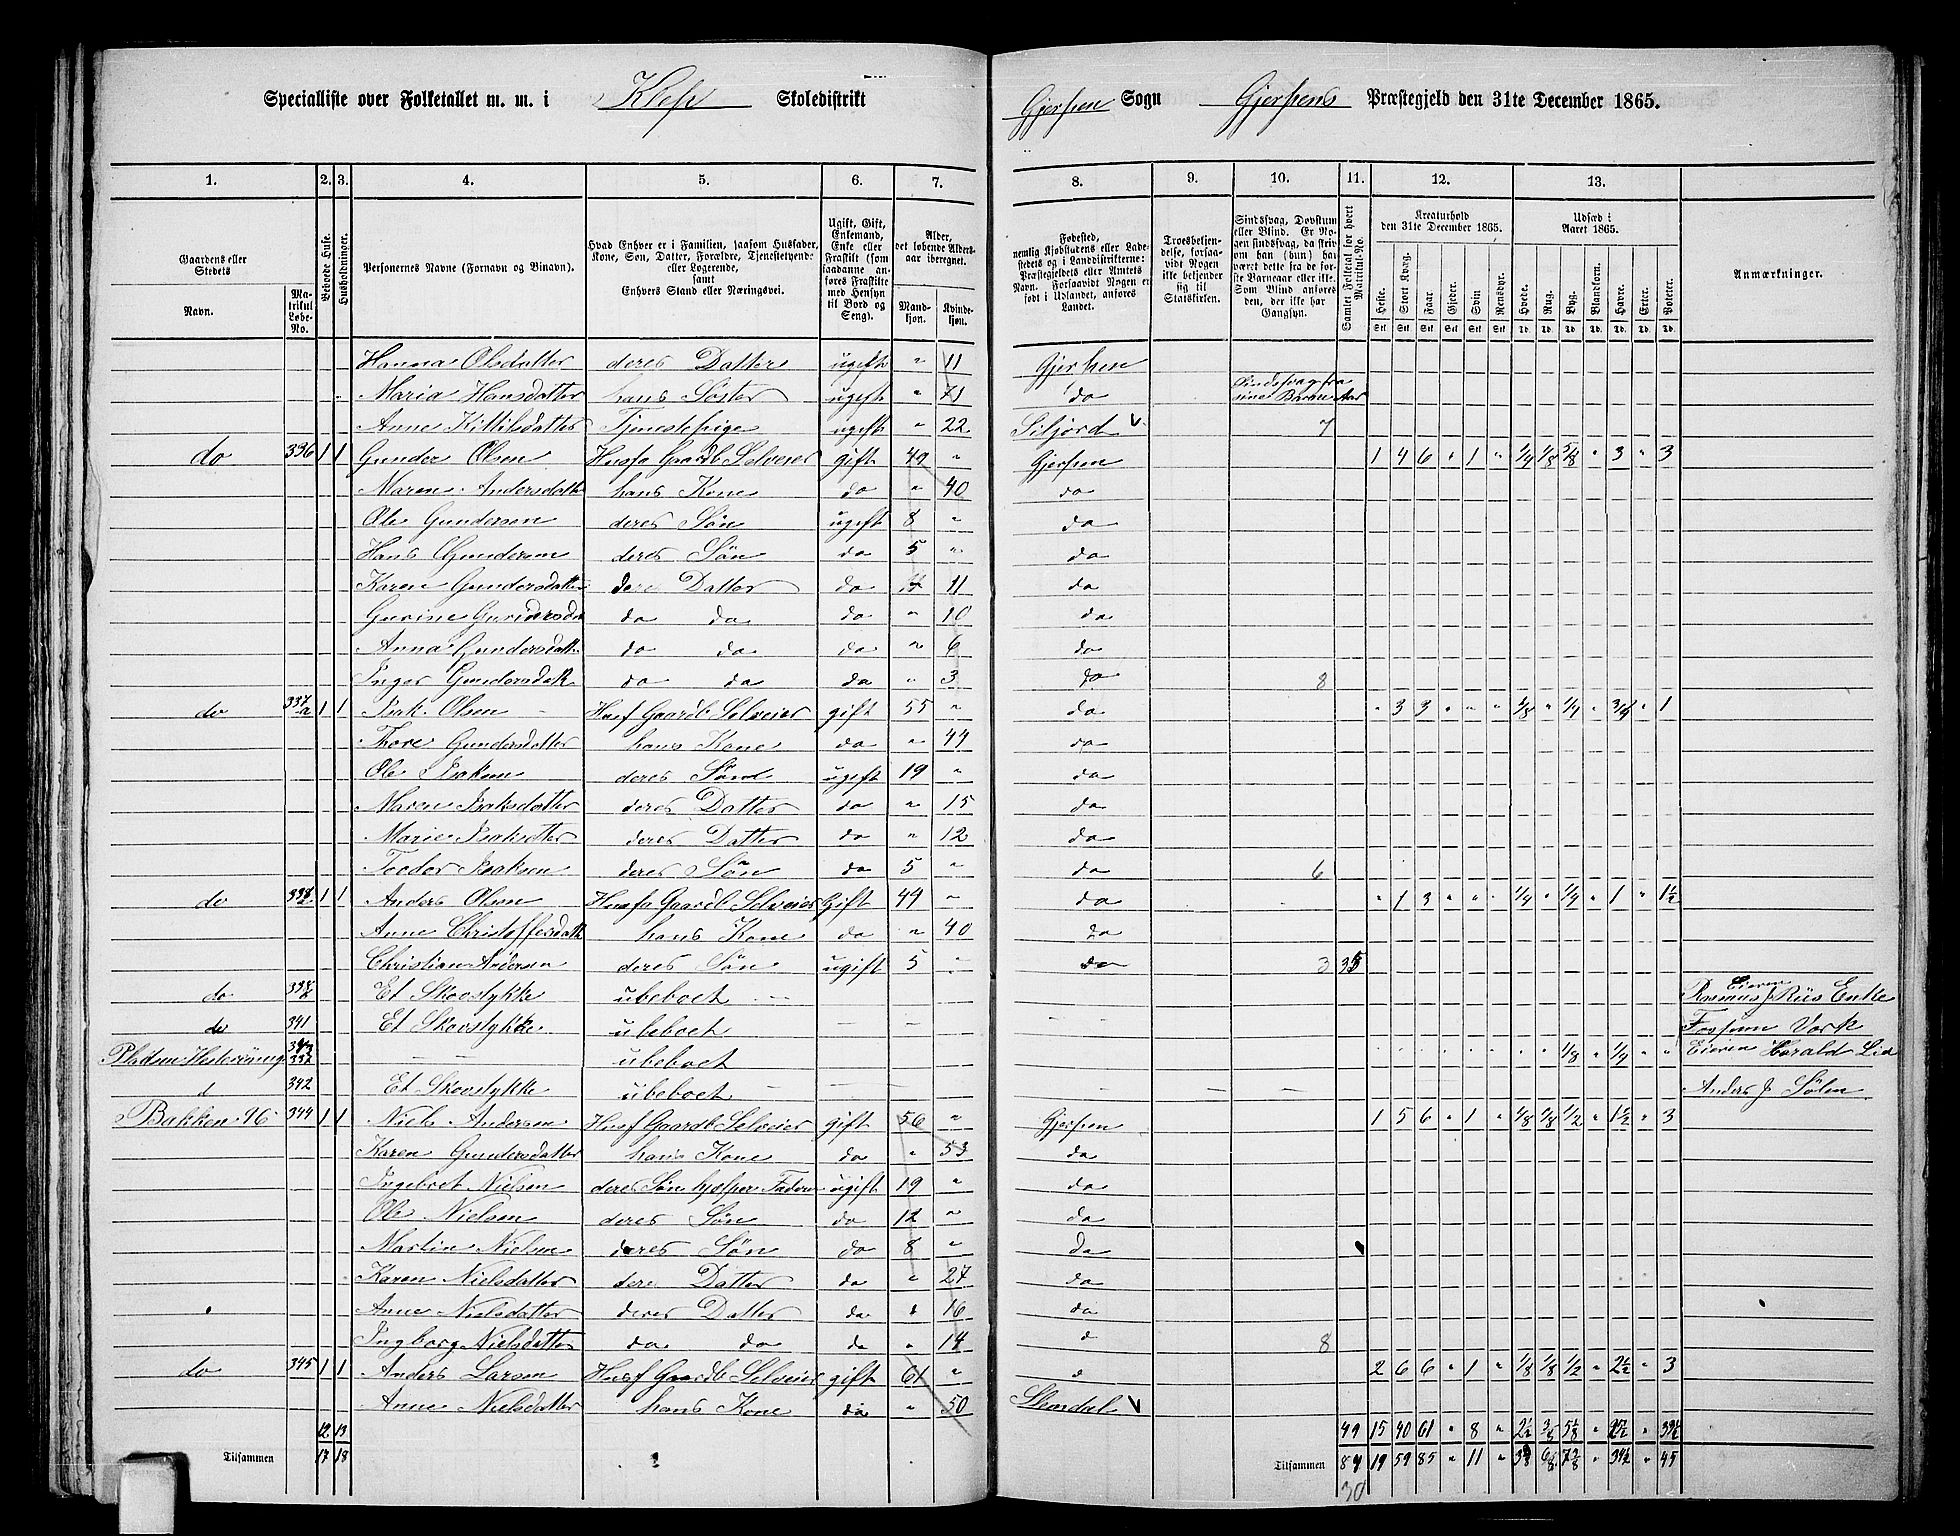 Specialliste over Folketallet m. m. i Klep Skoledistrikt Gjerpen Sogn Gjerpens Præstegjeld den 31te December 1865.
1. 2. 3. 4. 5. 6. 7. 8. 9. 10. 11. 12. 13.
Gaardens eller Stedets
Navn. Matrikul Løbe-No.
Beboede Huse.
Husholdninger.
Personernes Navne (Fornavn og Binavn).
Hvad Enhver er i Familien, saasom Husfader, Kone, Søn, Datter, Forældre, Tjenestetyende eller Logerende, samt Enhvers Stand eller Næringsvei.
Ugift, Gift, Enkemand, Enke eller Fraskilt (som saadanne anføres Fraskilte med Hensyn til Bord og Seng).
Alder, det løbende Aldersaar iberegnet.
Mandkjøn. Kvindekjøn.
Fødested, nemlig Kjøbstadens eller Ladestedets og i Landdistrikterne: Præstegjeldets eller Amtets Navn. Forsaavidt Nogen er født i Udlandet, anføres Landet.
Troesbekjendelse, forsaavidt Nogen ikke bekjender sig til Statskirken.
Sindssvag, Døvstum eller Blind. Er Nogen sindssvag, da skrives om han (hun) har været dette fra de første Barneaar eller ikke. Som Blind anføres den, der ikke har Gangsyn.
Samlet Folketal for hvert Matrikul-No.
Kreaturhold den 31te December 1865.
Heste. Stort Kvæg. Faar Gjeder. Svin Rensdyr.
Udsæd i Aaret 1865.
Hvede. Rug. Byg. Blandkorn. Havre. Erter. Poteter.
Anmærkninger.
Hanna Olsdatter deres Datter ugift " 11 Gjerpen
Maria Hansdatter hans Søster ugift " 71 do Sindssvag fra sine Barne Aar
Anne Kittilsdatter Tjenestepige ugift " 22 Siljord V 7
do 336 1 1 Gunder Olsen Husf Gaardb Selveier gift 49 " Gjerpen 1 4 6 " 1 " 1/4 1/8 5/8 " 3 " 3
Maren Andersdatt hans Kone do " 40 do
Ole Gundersen deres Søn ugift 8 " do
Hans Gundersen deres Søn do 5 " do
Karen Gundersdatter deres Datter do 11 do
Gurine Gundersda do do do " 10 do
Anna Gundersdatt do do do " 6 do
Inger Gundersdatt do do do " 3 do 8
do 337a 1 1 Isak Olsen Husf Gaardb Selveier gift 55 " do " 3 3 " " " 1/8 " 1/4 " " 1
Thore Gundersdatter hans Kone do " 44 do
Ole Isaksen deres Søn ugift 19 " do
Maren Isaksdatter deres Datter do " 15 do
Marie Isaksdatter deres Datter do " 12 do
Teodor Isaksen deres Søn do 5 " do 6
do 1 1 Anders Olsen Husfa Gaardb Selveier Gift 44 " do " 1 3 " " " 1/4 " 1/4 " 1 " 1 1/2
Anne Christoffesdatt hans Kone do " 40 do
Christian Andersen deres Søn ugift 5 " do 3
do Et Skovstykke ubeboet Eieren Rasmus J Riis Enke
do 341 Et Skovstykke ubeboet Fossum Værk
Pladsen ubeboet 1/8 " " " Eieren Harald Lia
d 342 Et Skovstykke ubeboet Anders J Sølen
Bakken 16 344 1 1 Niels Andersen Husf Gaardb Selveier gift 56 " Gjerpen 1 5 6 " 1 " 1/8 1/8 1/2 " 1 1/2 " 3
Karen Gundersdatter hans Kone do " 53 do
Ingebret Nielsen deres Søn hjælper Faderen ugift 19 " do
Ole Nielsen deres Søn do 12 " do
Martin Nielsen deres Søn do 8 " do
Karen Nielsdatter deres Datter do " 27 do
Anne Nielsdatter deres Datter do " 16 do
Ingborg Nielsdatter do do do " 14 d 8
do 345 1 1 Anders Larsen Husf Gaardb Selveier gift 61 " d 2 6 6 " 1 " 1/8 1/8 1/2 " 2 1/2 " 3
Anne Nielsdatter hans Kone do " 50 Slemdal V
12 13 49 15 40 61 " 8 "
Tilsammen 17 18 Tilsammen 19 59 85 " 11 " 45
30